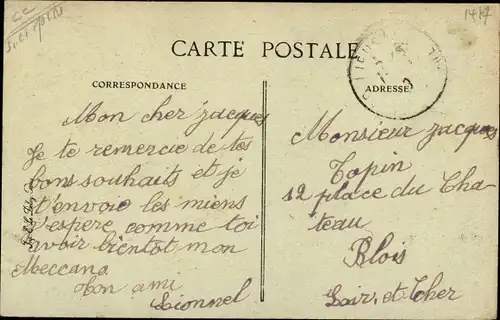 CARTE POSTALE
CORRESPONDANCE
Mon cher jacques
Je te remercie de tes
bons souhaits et je
t'envoie les miens
j'espere comme toi
avoir bientot mon
Meccano
Ton ami
Lionnel
ADRESSE
Monsieur jacques
Topin
12 place du Cha
teau
Blois
Loir et Cher